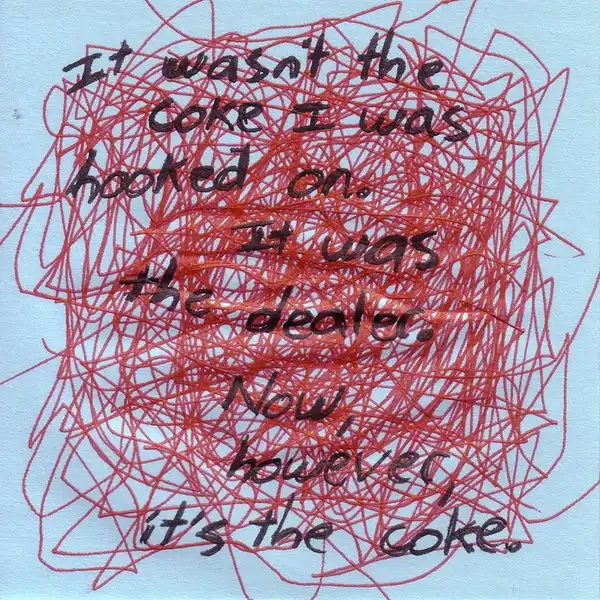 It wasn't the
coke I was
hooked on.
It was
the dealer.
Now,
however,
it's the coke.